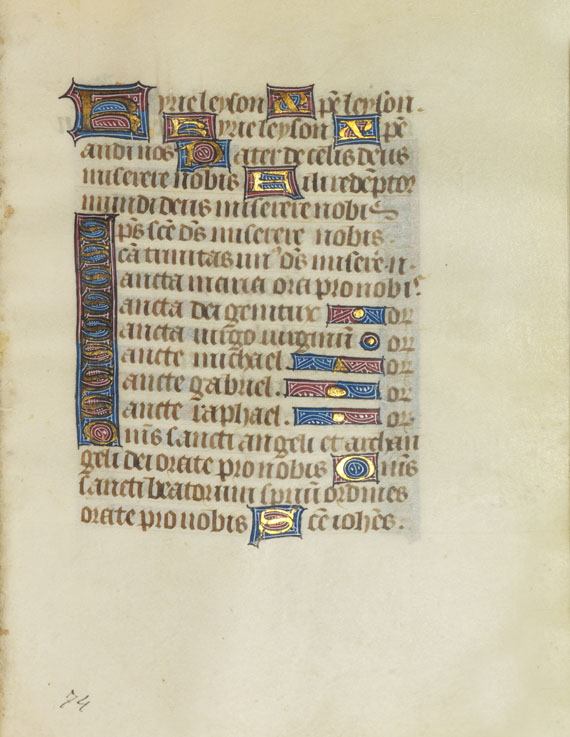 Kyrieleyson Xp̄eleyson.
Kyrieleyson Xp̄e
audi nos Pater de celis deus
miserere nobis Fili redẽptor
mundi deus miserere nobis
Sp̄s scē d̄s miserere nobis.
Scā trinitas un᷒ d̄s misere.n.
Sancta maria ora pro nobis
Sancta dei genitrix or
Sancta virgo virginū or
Sancte michael. or
Sancte gabriel. or
Sancte raphael. or
Omīs sancti angeli et archan
geli dei orate pro nobis Omīs
sancti beatorum sprituū ordines
orate pro nobis Scē iohēs.
74